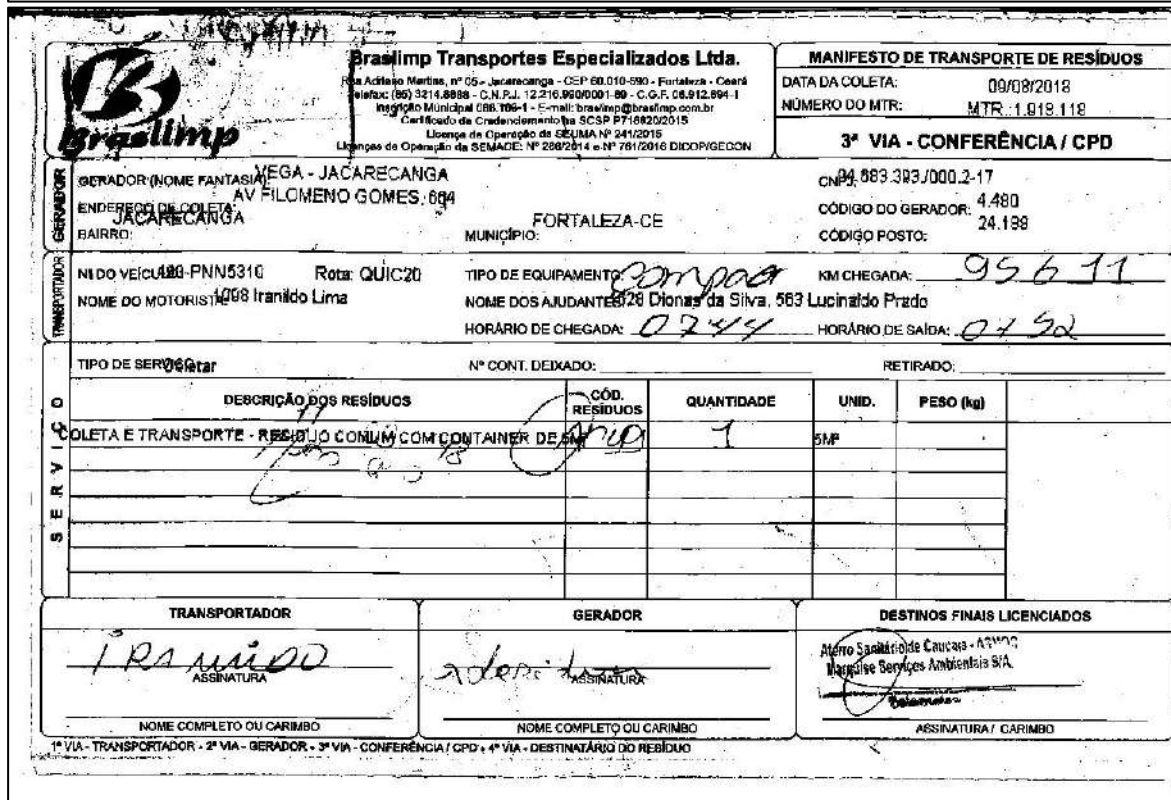 Braslimp
Braslimp Transportes Especializados Ltda.
Rua Adriano Martins, nº 05 - Jacarecanga - CEP 60.010-590 - Fortaleza - Ceará
Telefax: (85) 3214.8888 - C.N.P.J. 12.216.990/0001-89 - C.G.F. 06.912.694-1
Inscrição Municipal 088.106-1 - E-mail: braslimp@braslimp.com.br
Certificado de Credenciamento na SCSP P716820/2015
Licença de Operação da SEUMA Nº 241/2015
Licenças de Operação da SEMACE: Nº 286/2014 e Nº 761/2016 DICOP/GECON
MANIFESTO DE TRANSPORTE DE RESÍDUOS
DATA DA COLETA: 09/08/2018
NÚMERO DO MTR: MTR :1.918.118
3ª VIA - CONFERÊNCIA / CPD
GERADOR
GERADOR (NOME FANTASIA): VEGA - JACARECANGA
CNPJ: 04.883.393./000.2-17
ENDEREÇO DE COLETA: AV FILOMENO GOMES, 664
CÓDIGO DO GERADOR: 4.480
BAIRRO: JACARECANGA
MUNICÍPIO: FORTALEZA-CE
CÓDIGO POSTO: 24.198
TRANSPORTADOR
Nº DO VEÍCULO: PNN5310 Rota: QUIC20
TIPO DE EQUIPAMENTO: Compac
KM CHEGADA: 95611
NOME DO MOTORISTA: 1008 Iranildo Lima
NOME DOS AJUDANTES: Dionas da Silva, 563 Lucinaldo Prado
HORÁRIO DE CHEGADA: 0744
HORÁRIO DE SAÍDA: 0752
SERVIÇO
TIPO DE SERVIÇO: Coletar
Nº CONT. DEIXADO:
RETIRADO:
DESCRIÇÃO DOS RESÍDUOS CÓD. RESÍDUOS QUANTIDADE UNID. PESO (kg)
COLETA E TRANSPORTE - RESIDUO COMUM COM CONTAINER DE 5M³ 1 5M³
TRANSPORTADOR
IRANILDO
ASSINATURA
NOME COMPLETO OU CARIMBO
GERADOR
ASSINATURA
NOME COMPLETO OU CARIMBO
DESTINOS FINAIS LICENCIADOS
Aterro Sanitário de Caucaia -
Marquise Serviços Ambientais S/A
ASSINATURA / CARIMBO
1ª VIA - TRANSPORTADOR - 2ª VIA - GERADOR - 3ª VIA - CONFERÊNCIA / CPD - 4ª VIA - DESTINATÁRIO DO RESÍDUO